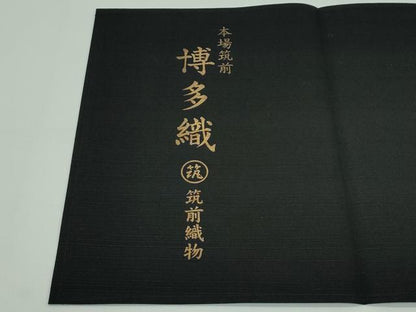 本場筑前
博多織
筑 筑前織物